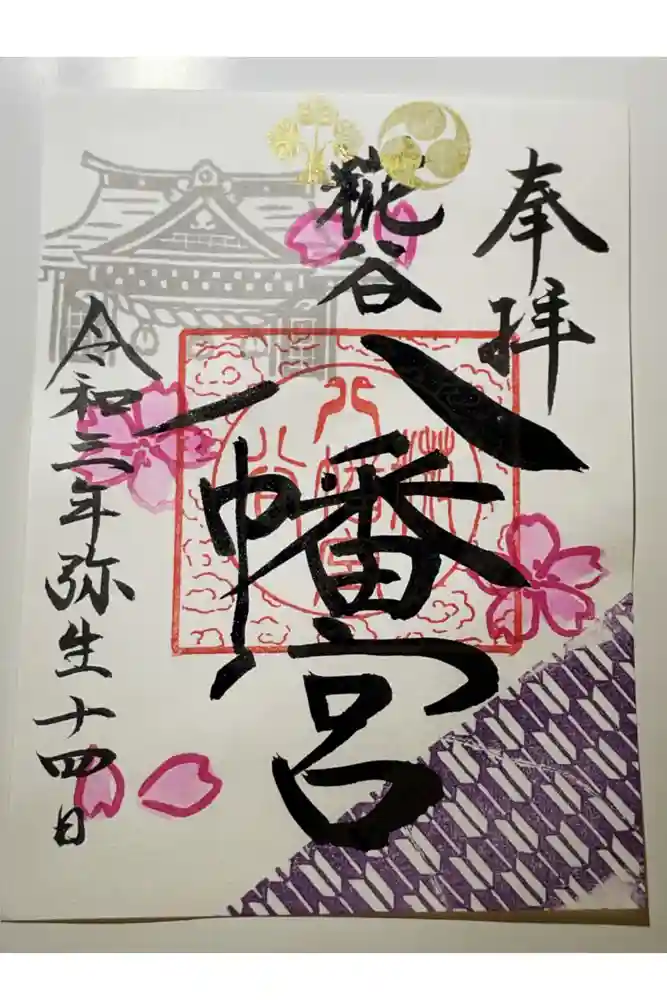 奉拝
糀谷
八幡宮
令和三年弥生十四日